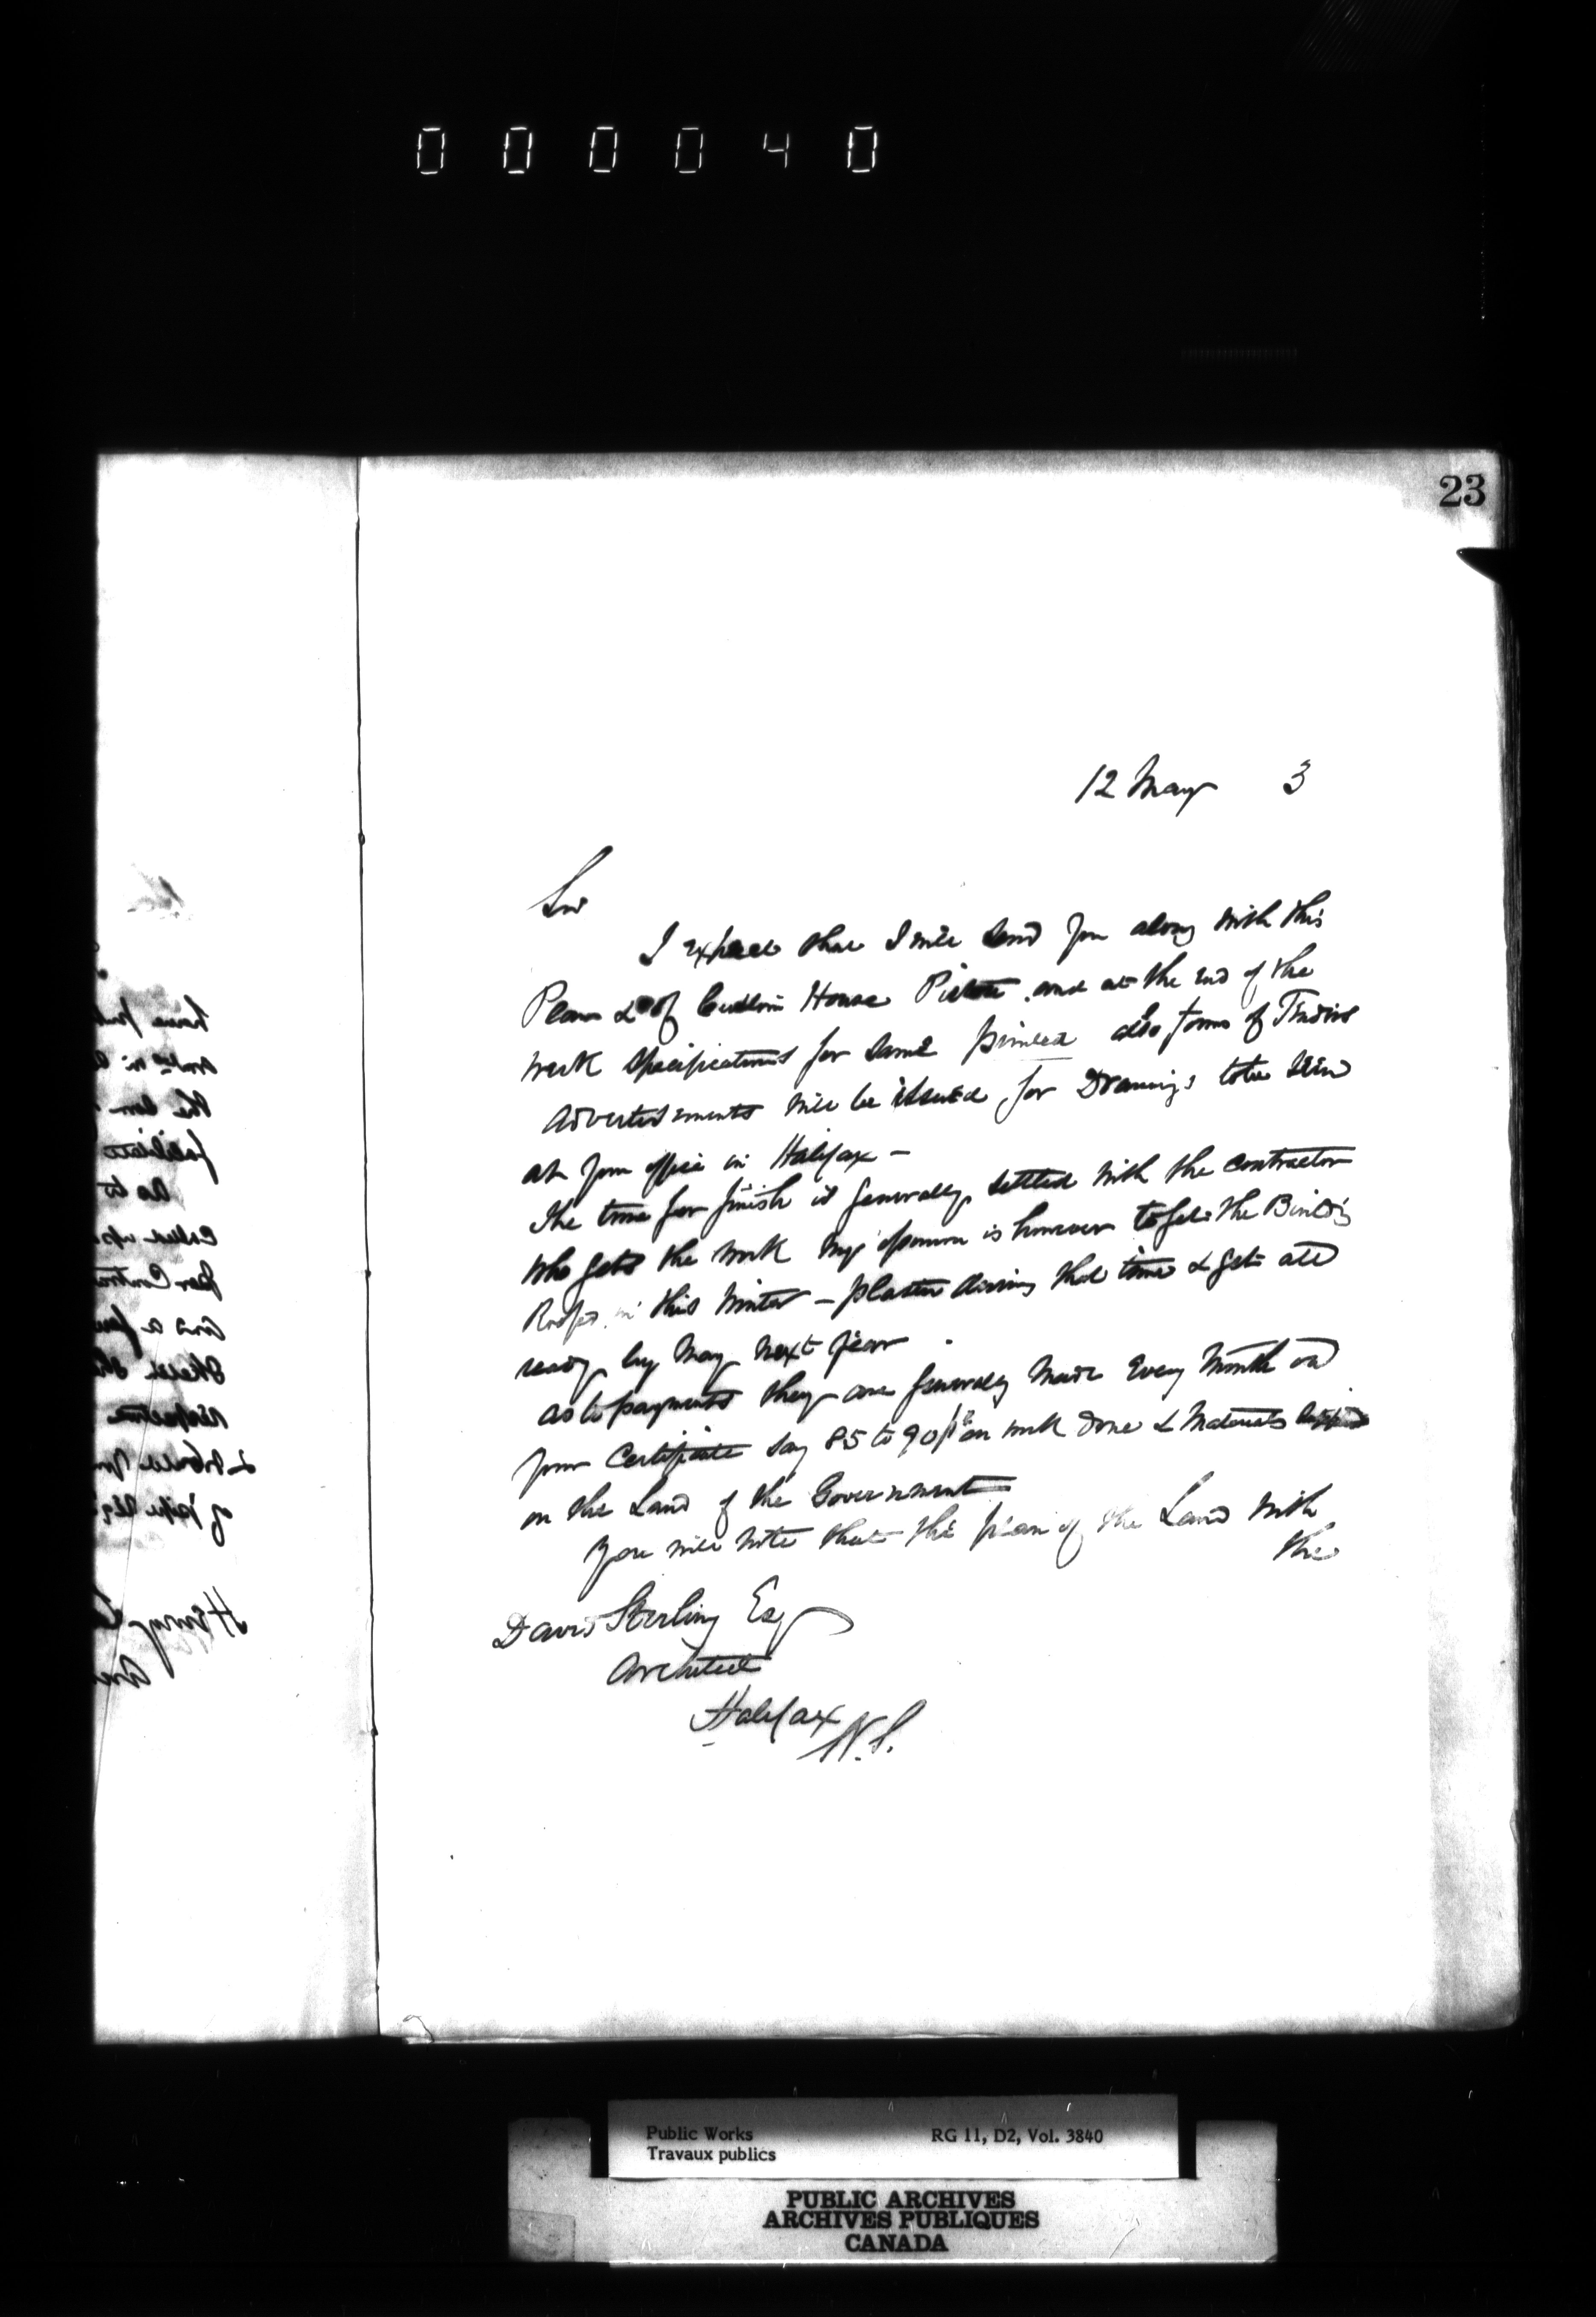 000040
23
12 May 3
Sir
I expect that I will send you along with this
Plans &c of Custom House Pictou and at the end of the
week specifications for same printed also forms of Tenders
Advertisements will be issued for Drawings to be seen
at your office in Halifax -
The time for finish is generally settled with the contractor
who gets the work my opinion is however to get the Building
Roofed in this Winter - plaster during that time & get all
ready by May next year
as to payments they are generally made Every Month on
your Certificate say 85 to 90 on work done & Materials
on the Land of the Government
You will note that the plan of the Land with
the
David Sterling Esq
Architect
Halifax
N.S.
Public Works
Travaux publics
RG 11, D2, Vol. 3840
PUBLIC ARCHIVES
ARCHIVES PUBLIQUES
CANADA